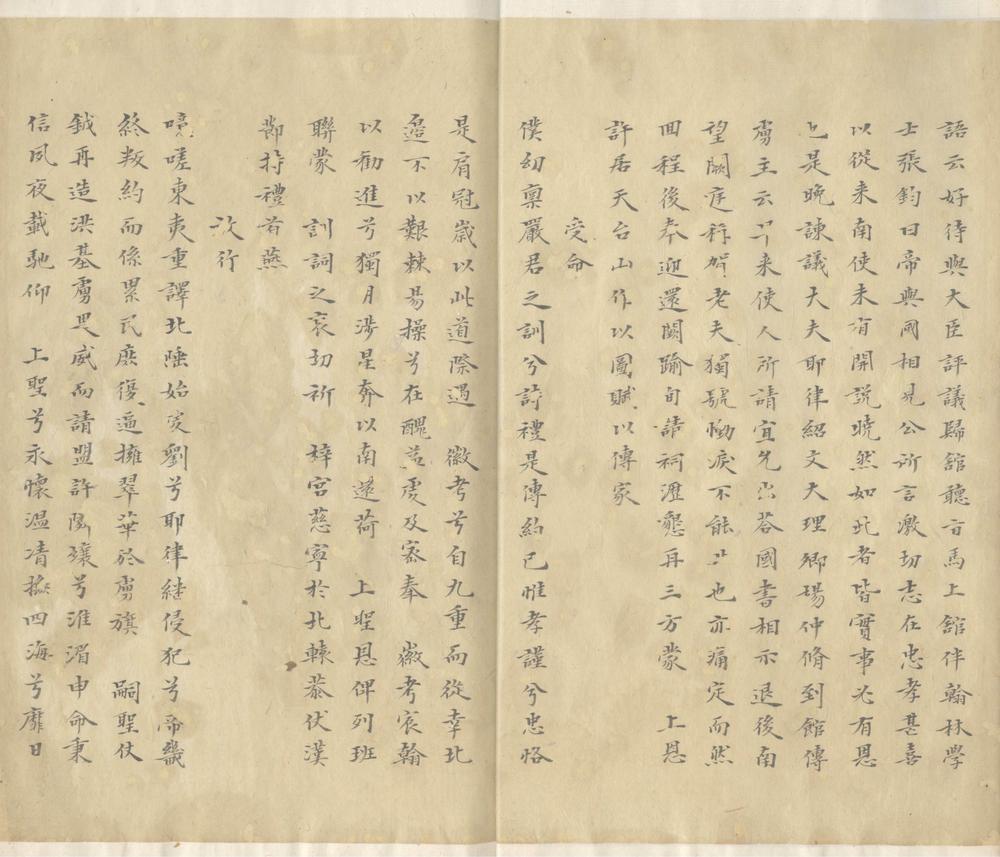 語云好待與大臣評議歸館聽旨馬上館伴翰林學
士張鈞曰帝與國相見公所言激切志在忠孝甚喜
以從来南使未有開説曉然如此者皆實事必有恩
也是晚諫議大夫耶律紹文大理卿楊仲脩到館傳
虜主云 来使人所請宜先出荅國書相示退後南
望闕庭稱賀老夫獨號慟淚不能止也亦痛定而然
囬程後奉迎還闕踰旬請祠瀝懇再三方蒙　上恩
許居天台山作以圖賦以傳家
受命
僕幼禀嚴君之訓兮詩禮是傳約己惟孝謹兮忠恪
是肩冠嵗以此道際遇　徽考兮自九重而從幸北
邉不以艱棘昜操兮在醜 虔及密奉　徽考宸翰
以勸進兮獨月涉星奔以南遂荷　上聖恩俾列班
聯蒙　訓詞之哀切祈　梓宮慈寧於北轅恭伏漢
節持禮若燕
啟行
噫嗟東夷重譯北陲始 劉兮耶律継侵犯兮帝畿
終叛約而係累民庶復逼擁翠華於虜旗　嗣聖仗
鉞再造洪基虜畏威而請盟許隣穰兮淮湄申命秉
信夙夜載馳仰　上聖兮永懷温凊撫四海兮靡日